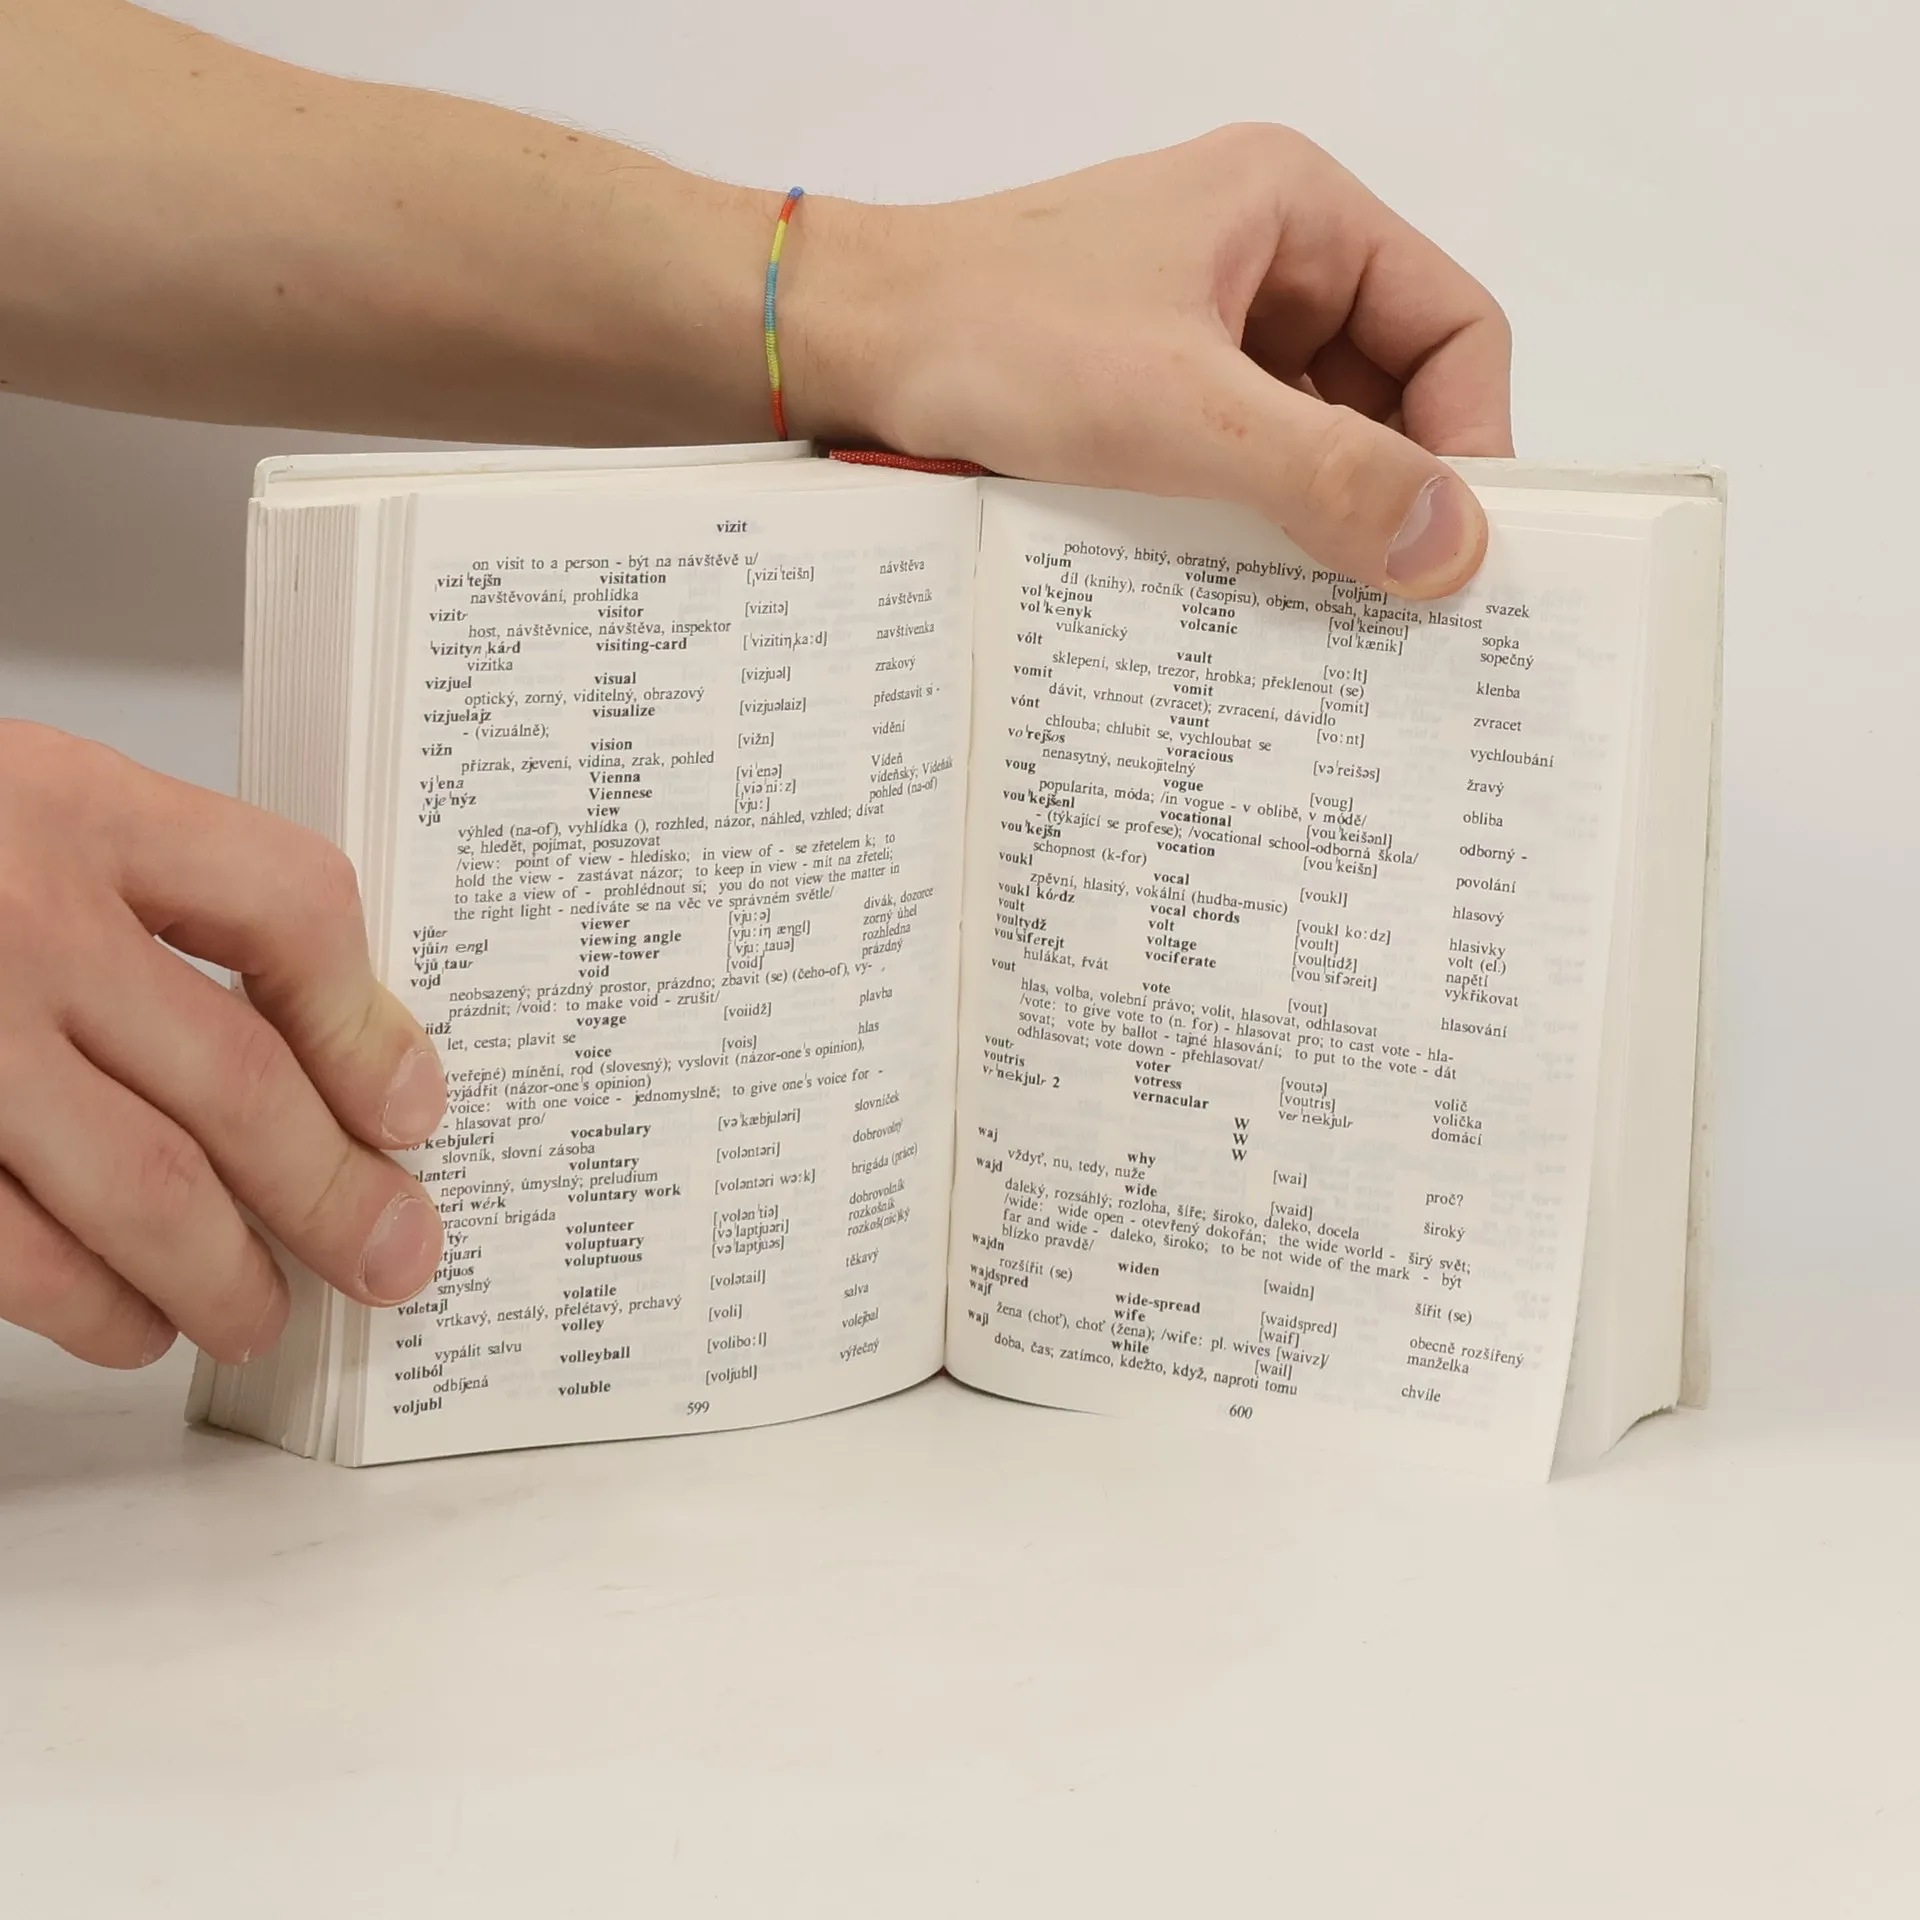 vizit
on visit to a person - být na návštěvě u/
ˌviziˈtejšn visitation [ˌviziˈteišn] návštěva
navštěvování, prohlídka
vizitr visitor [vizitə] návštěvník
host, návštěvnice, návštěva, inspektor
ˈvizitynˌkárd visiting-card [ˈvizitiŋˌka:d] navštívenka
vizitka
vizjuel visual [vizjuəl] zrakový
optický, zorný, viditelný, obrazový
vizjuelajz visualize [vizjuəlaiz] představit si -
- (vizuálně);
vižn vision [vižn] vidění
přízrak, zjevení, vidina, zrak, pohled
vjˈena Vienna [viˈenə] Vídeň
ˌvjeˈnýz Viennese [ˌviəˈni:z] vídeňský; Vídeňák
vjů view [vju:] pohled (na-of)
výhled (na-of), vyhlídka (), rozhled, názor, náhled, vzhled; dívat
se, hledět, pojímat, posuzovat
/view: point of view - hledisko; in view of - se zřetelem k; to
hold the view - zastávat názor; to keep in view - mít na zřeteli;
to take a view of - prohlédnout si; you do not view the matter in
the right light - nedíváte se na věc ve správném světle/
vjůer viewer [vju:ə] divák, dozorce
vjůin engl viewing angle [vju:iŋ æŋgl] zorný úhel
ˈvjůˌtaur view-tower [ˈvju:ˌtauə] rozhledna
vojd void [void] prázdný
neobsazený; prázdný prostor, prázdno; zbavit (se) (čeho-of), vy-
prázdnit; /void: to make void - zrušit/
voyage [voiidž] plavba
let, cesta; plavit se
voice [vois] hlas
(veřejné) mínění, rod (slovesný); vyslovit (názor-one's opinion),
vyjádřit (názor-one's opinion)
/voice: with one voice - jednomyslně; to give one's voice for -
- hlasovat pro/
vocabulary [vəˈkæbjuləri] slovníček
slovník, slovní zásoba
voluntary [voləntəri] dobrovolný
nepovinný, úmyslný; preludium
voluntary work [voləntəri wə:k] brigáda (práce)
pracovní brigáda
volunteer [ˌvolənˈtiə] dobrovolník
voluptuary [vəˈlaptjuəri] rozkošník
voluptuous [vəˈlaptjuəs] rozkoš(nic)ký
smyslný
voletajl volatile [volətail] těkavý
vrtkavý, nestálý, přelétavý, prchavý
voli volley [voli] salva
vypálit salvu
voliból volleyball [volibo:l] volejbal
odbíjená
voljubl voluble [voljubl] výřečný
599
pohotový, hbitý, obratný, pohyblivý,
voljum volume [voljum] svazek
díl (knihy), ročník (časopisu), objem, obsah, kapacita, hlasitost
volˈkejnou volcano [volˈkeinou] sopka
volˈkenyk volcanic [volˈkænik] sopečný
vulkanický
vólt vault [vo:lt] klenba
sklepení, sklep, trezor, hrobka; překlenout (se)
vomit vomit [vomit] zvracet
dávit, vrhnout (zvracet); zvracení, dávidlo
vónt vaunt [vo:nt] vychloubání
chlouba; chlubit se, vychloubat se
voˈrejšos voracious [vəˈreišəs] žravý
nenasytný, neukojitelný
voug vogue [voug] obliba
popularita, móda; /in vogue - v oblibě, v módě/
vouˈkejšenl vocational [vouˈkeišənl] odborný -
- (týkající se profese); /vocational school-odborná škola/
vouˈkejšn vocation [vouˈkeišn] povolání
schopnost (k-for)
voukl vocal [voukl] hlasový
zpěvní, hlasitý, vokální (hudba-music)
voukl kórdz vocal chords [voukl ko:dz] hlasivky
voult volt [voult] volt (el.)
voultydž voltage [voultidž] napětí
vouˈsiferejt vociferate [vouˈsifəreit] vykřikovat
hulákat, řvát
vout vote [vout] hlasování
hlas, volba, volební právo; volit, hlasovat, odhlasovat
/vote: to give vote to (n. for) - hlasovat pro; to cast vote - hla-
sovat; vote by ballot - tajné hlasování; to put to the vote - dát
odhlasovat; vote down - přehlasovat/
voutr voter [voutə] volič
voutris votress [voutris] volička
vrˈnekjulr 2 vernacular verˈnekjulr domácí
W
W
W
waj why [wai] proč?
vždyť, nu, tedy, nuže
wajd wide [waid] široký
daleký, rozsáhlý; rozloha, šíře; široko, daleko, docela
/wide: wide open - otevřený dokořán; the wide world - širý svět;
far and wide - daleko, široko; to be not wide of the mark - být
blízko pravdě/
wajdn widen [waidn] šířit (se)
rozšířit (se)
wajdspred wide-spread [waidspred] obecně rozšířený
wajf wife [waif] manželka
žena (choť), choť (žena); /wife: pl. wives [waivz]/
wajl while [wail] chvíle
doba, čas; zatímco, kdežto, když, naproti tomu
600